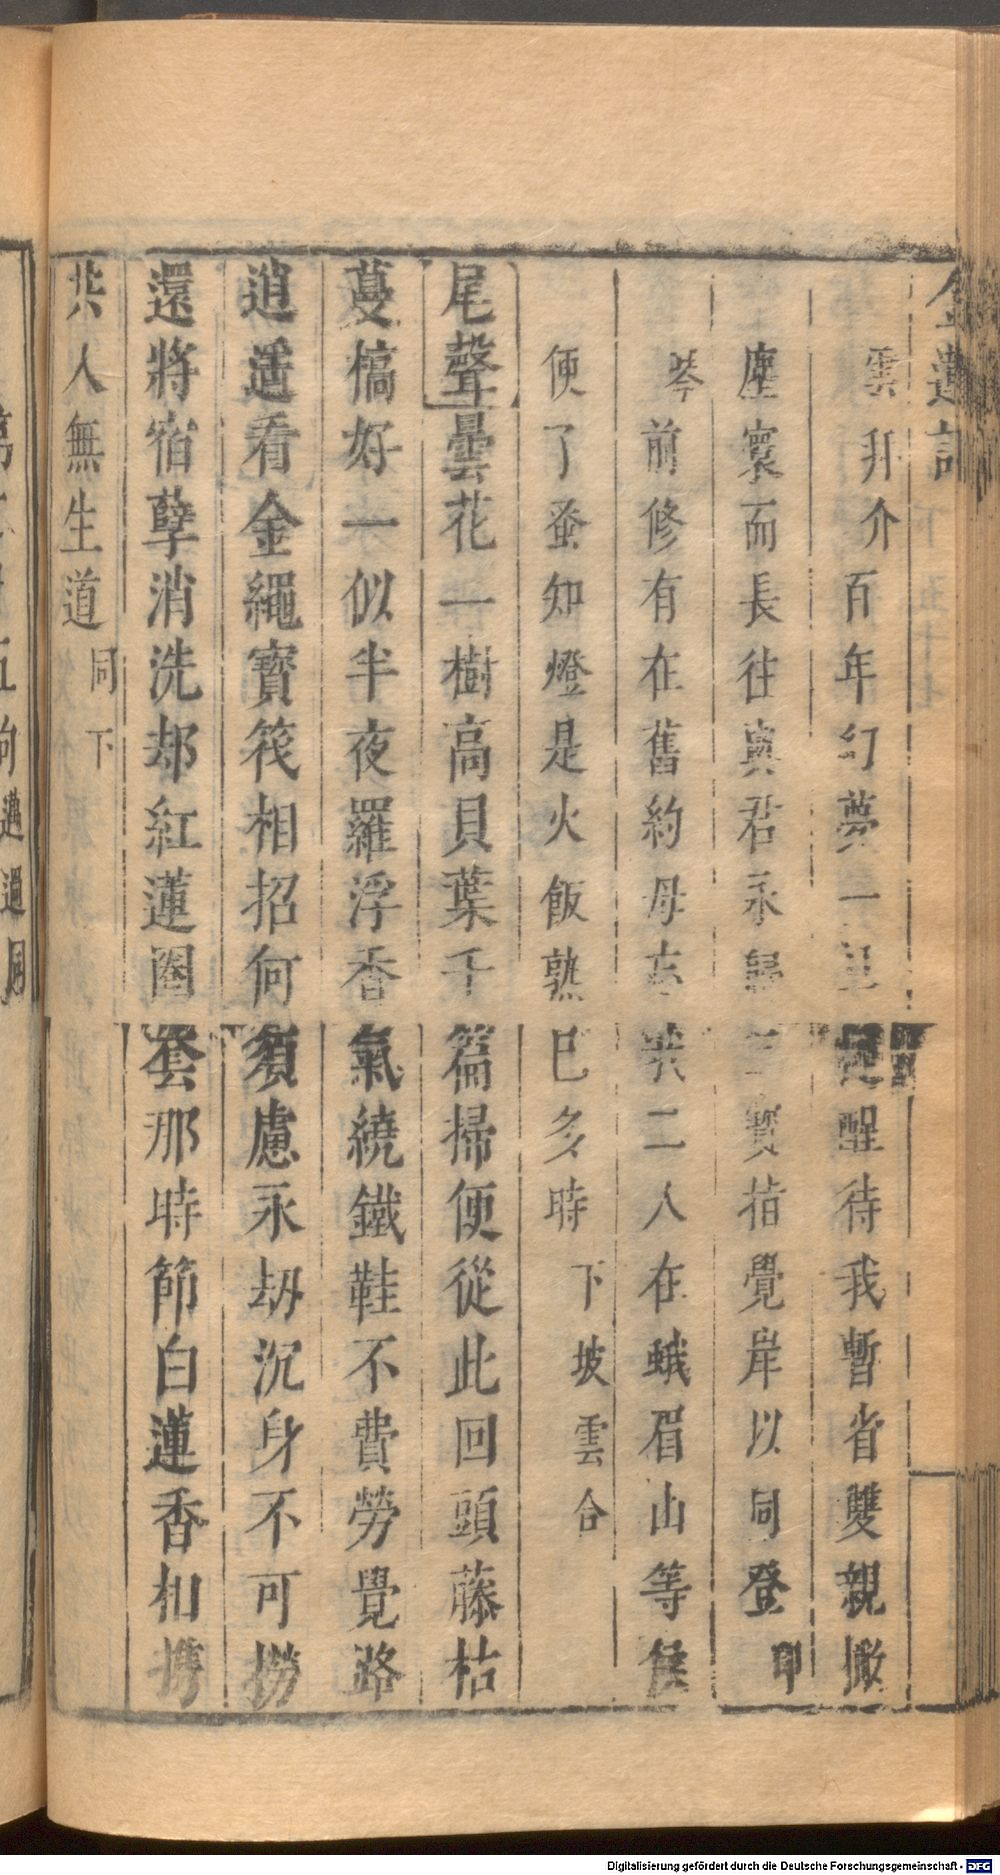 金蓮記 下 五十七
雲拜介百年幻夢一旦醒待我暫省雙親撇
塵寰而長往與君永歸三寶指覺岸以同登 印
琴前修有在舊約毋忘 二人在蛾眉山等候
便了蚤知燈是火飯熟巳多時 下坡雲合
尾聲曇花一樹高貝葉千篇掃便從此回頭藤枯
蔓槁好一似半夜羅浮香氣繞鐵鞋不費勞覺路
逍遥看金繩寳筏相招何須慮永劫沉身不可撈
還將宿孽消洗却紅蓮圈套那時節白蓮香相携
共人無生道 同下
Digitalisierung gefördert durch die Deutsche Forschungsgemeinschaft - DFG